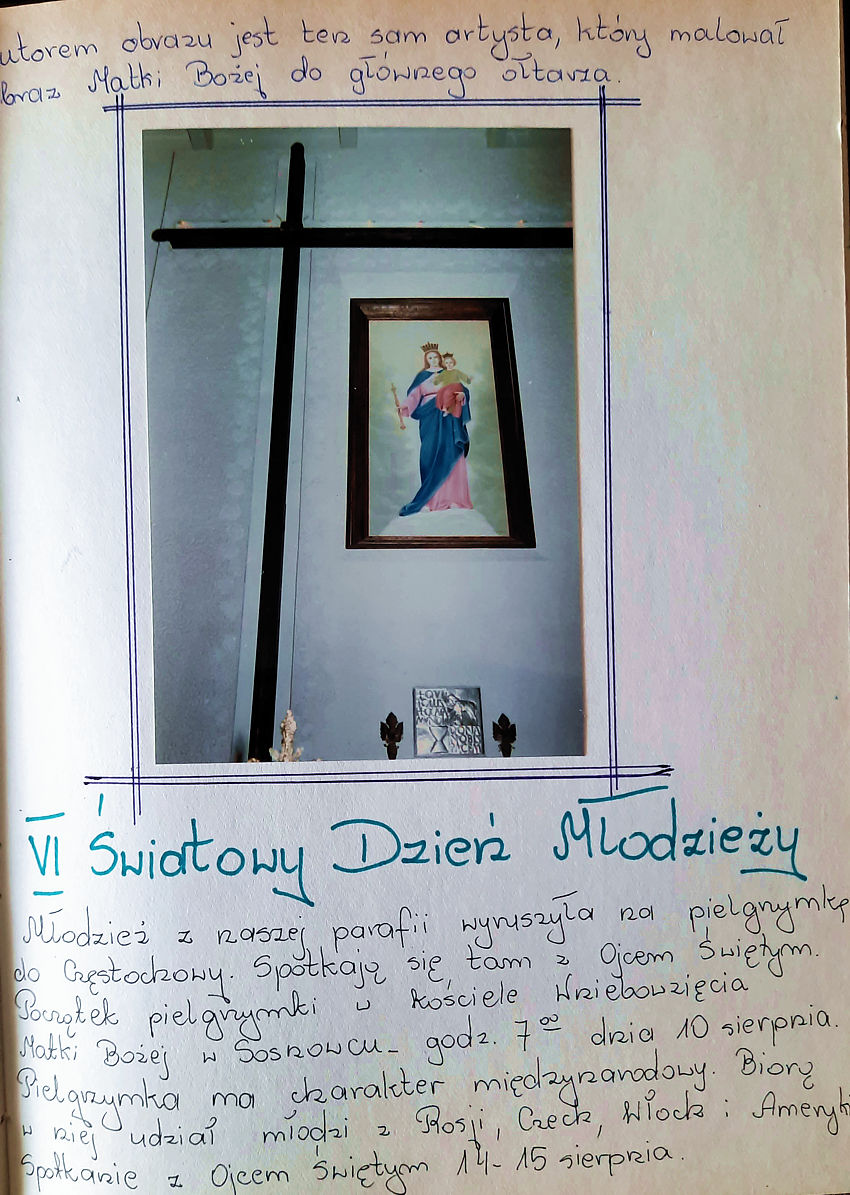 utorem obrazu jest ten sam artysta, który malował
braz Matki Bożej do głównego ołtarza.
VI Światowy Dzień Młodzieży
Młodzież z naszej parafii wyruszyła na pielgrzymkę
do Częstochowy. Spotkają się tam z Ojcem Świętym.
Początek pielgrzymki w kościele Wniebowzięcia
Matki Bożej w Sosnowcu - godz. 7⁰⁰ dnia 10 sierpnia.
Pielgrzymka ma charakter międzynarodowy. Biorą
w niej udział młodzi z Rosji, Czech, Włoch i Ameryki
Spotkanie z Ojcem Świętym 14-15 sierpnia.